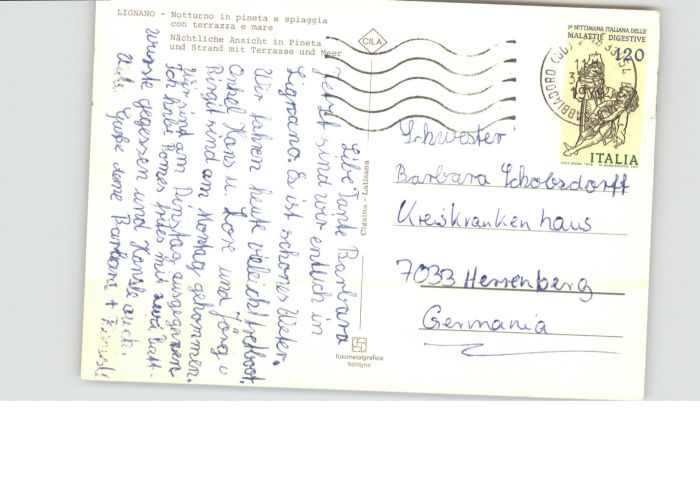 LIGNANO - Notturno in pineta e spiaggia
con terrazza e mare
Nächtliche Ansicht in Pineta
und Strand mit Terrasse und Meer
CILA
Libe Tante Barbara
Jetzt sind wir entlich in
Lignano. Es ist schönes Wetter.
Wir fahren heute Tretboot.
Onkel Hans u. Lore und Jörg u
Birgit sind am Montag gekommen.
wir sind am Dinstag ausgegangen.
Ich habe Pomes frites mit zwei Watt-
würste gegessen und auch.
Viele Grüße deine Barbara +
Cigaina - Latisana
fotometalgrafica
bologna
1ª SETTIMANA ITALIANA DELLE
MALATTIE DIGESTIVE
120
ITALIA
Schwester
Barbara Schobsdorff
Kreiskrankenhaus
7033 Herrenberg
Germania